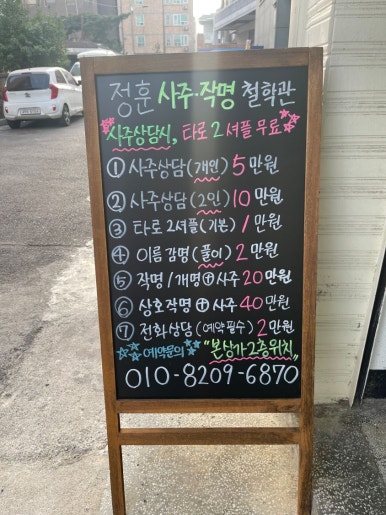 정훈 사주·작명 철학관
사주상담시, 타로 2셔플 무료
① 사주상담(개인) 5만원
② 사주상담(2인) 10만원
③ 타로 2셔플(기본) 1만원
④ 이름감명(풀이) 2만원
⑤ 작명/개명⊕사주 20만원
⑥ 상호작명⊕사주 40만원
⑦ 전화상담(예약필수) 2만원
예약문의 "본상가2층위치"
010-8209-6870